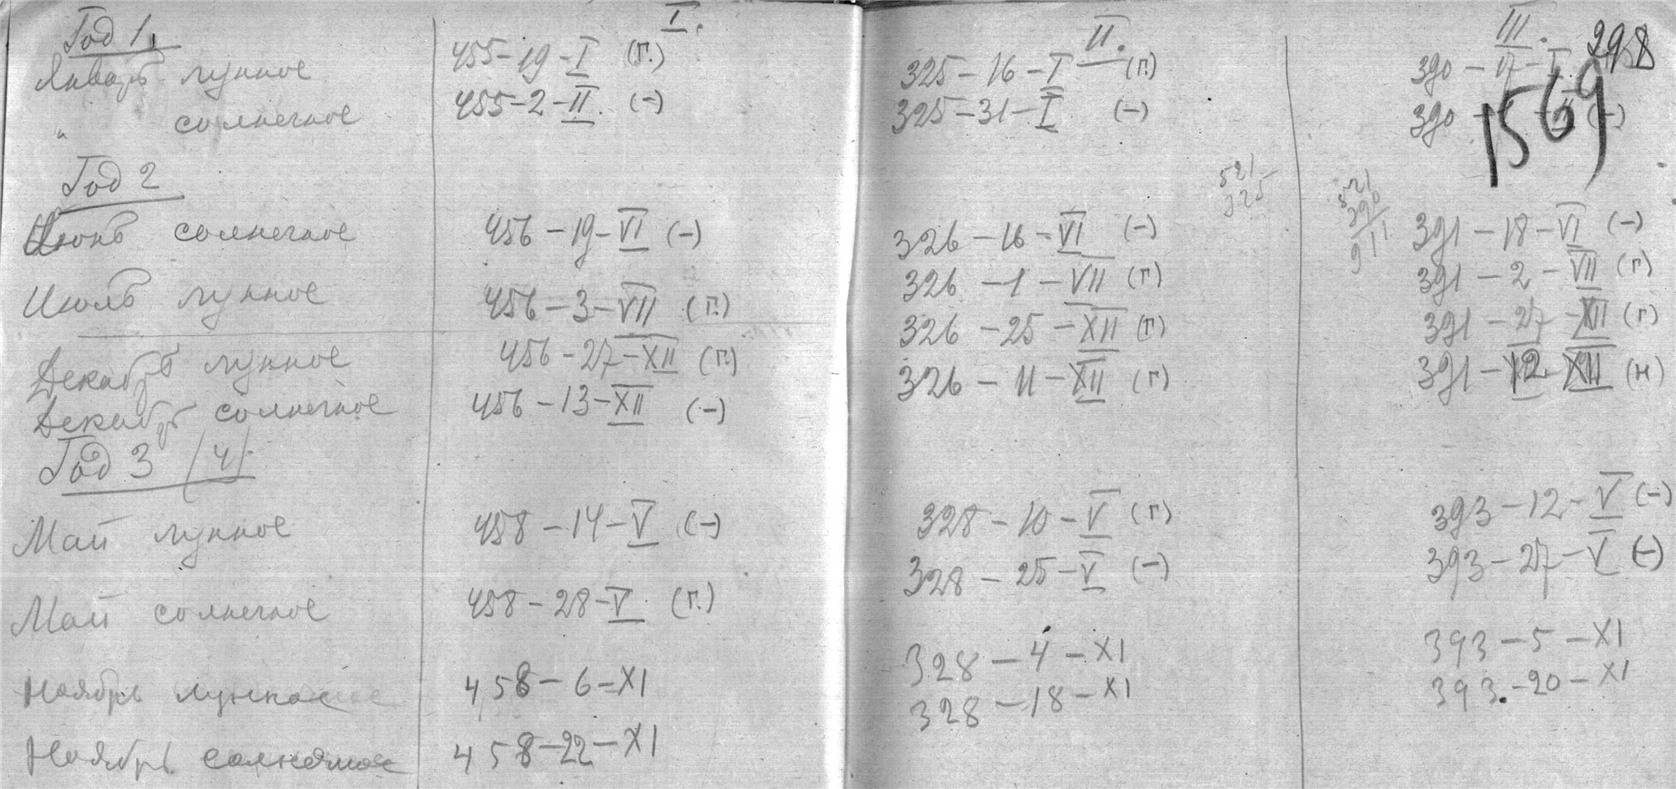 I. II. III. 298
Год 1.
Январь лунное 455-19-I (г.) 325-16-I (г) 390-17-I
" солнечное 455-2-II (-) 325-31-I (-) 390 (-)
1569
Год 2
521 325
521 390 911
Июнь солнечное 456-19-VI (-) 326-16-VI (-) 391-18-VI (-)
Июль лунное 456-3-VII (г.) 326-1-VII (г) 391-2-VII (г)
Декабрь лунное 456-27-XII (г.) 326-25-XII (г) 391-27-XII (г)
Декабрь солнечное 456-13-XII (-) 326-11-XII (г) 391-12-XII (н)
Год 3 (4)
Май лунное 458-14-V (-) 328-10-V (г) 393-12-V (-)
Май солнечное 458-28-V (г.) 328-25-V (-) 393-27-V (-)
Ноябрь лунное 458-6-XI 328-4-XI 393-5-XI
Ноябрь солнечное 458-22-XI 328-18-XI 393-20-XI